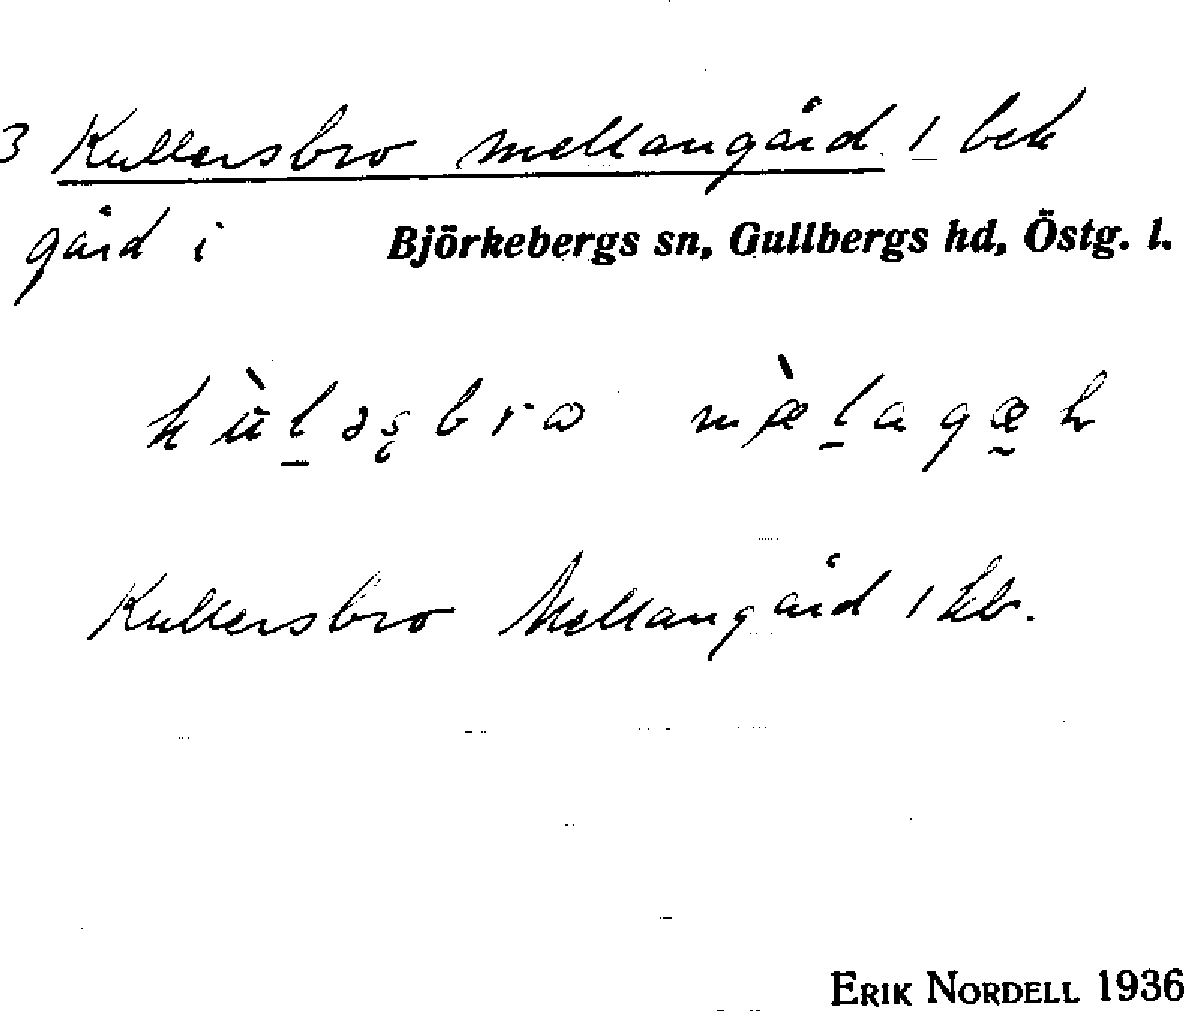 3 Kullersbro mellangård 1 bek
gård i Björkebergs sn, Gullbergs hd, Östg. l.
Kullersbro Mellangård 1 kb.
ERIK NORDELL 1936